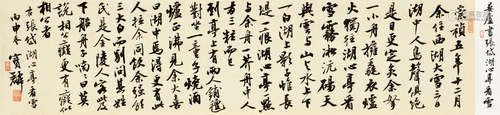 書張岱湖心亭看雪
崇禎五年十二月
余住西湖大雪三日
湖中人鳥聲俱絕
是日更定矣余拏
一小舟擁毳衣爐
火獨往湖心亭看
雪霧凇沆碭天
與雲與山與水上下
一白湖上影子惟長
堤一痕湖心亭一點
與余舟一芥舟中人兩
三粒而已
到亭上有兩人鋪氈
對坐一童子燒酒
爐正沸見余大喜
曰湖中焉得更有此
人拉余同飲余強飲
三大白而別問其姓
氏是金陵人客此及
下船舟子喃喃曰莫
說相公癡更有癡似
相公者
右張岱湖心亭看雪
丙申冬